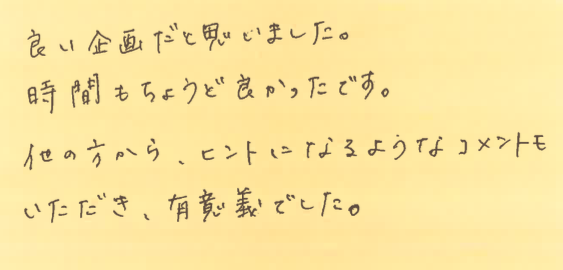 良い企画だと思いました。
時間もちょうど良かったです。
他の方から、ヒントになるようなコメントも
いただき、有意義でした。